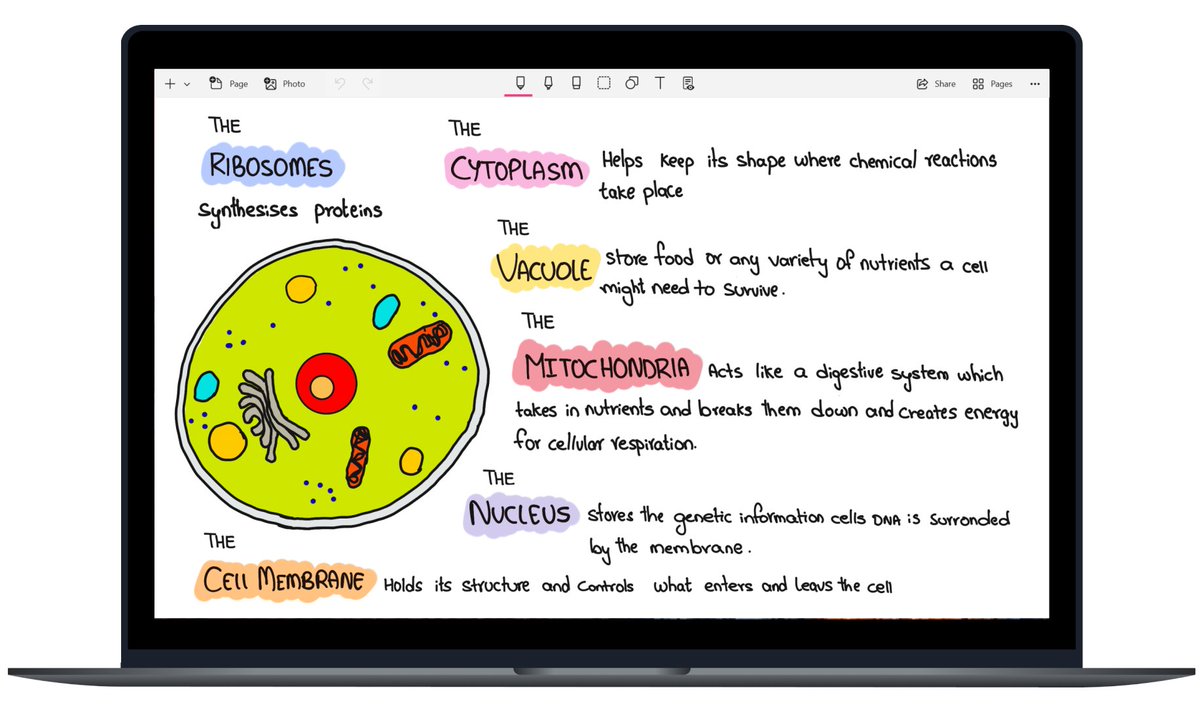 Page
Photo
Share
Pages
THE
RIBOSOMES
synthesises proteins
THE
CYTOPLASM
Helps keep its shape where chemical reactions
take place
THE
VACUOLE
store food or any variety of nutrients a cell
might need to survive.
THE
MITOCHONDRIA
Acts like a digestive system which
takes in nutrients and breaks them down and creates energy
for cellular respiration.
THE
NUCLEUS
stores the genetic information cells DNA is surronded
by the membrane.
THE
CELL MEMBRANE
Holds its structure and controls what enters and leavs the cell